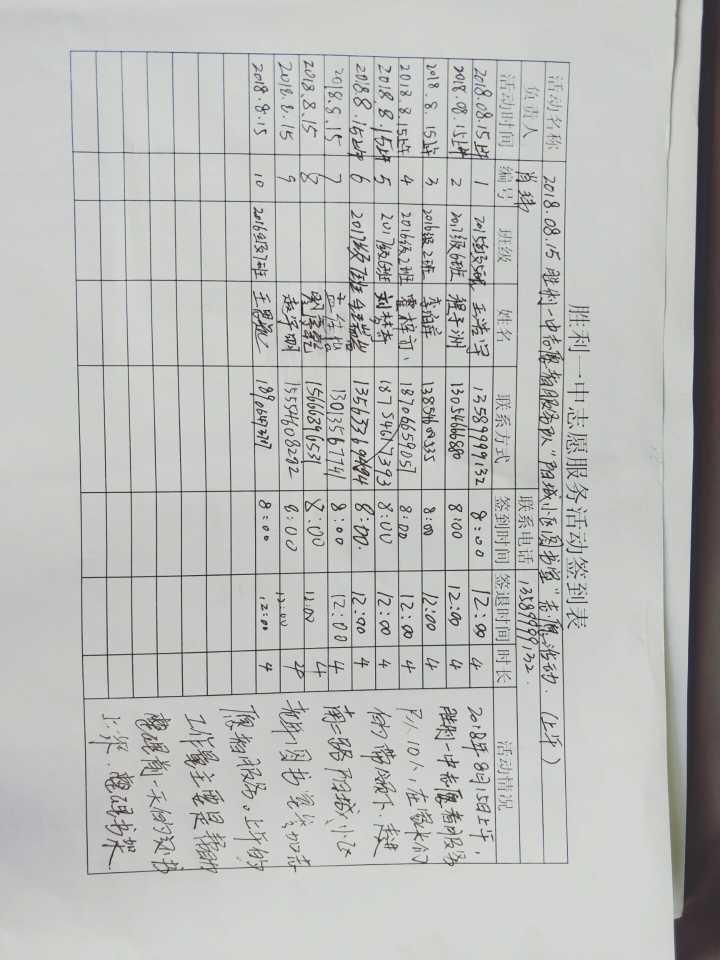 胜利一中志愿服务活动签到表
活动名称 2018.08.15 胜利一中志愿者服务队"阳城小区图书室"志愿活动.(上午)
负责人 肖 联系电话 13589999132.
活动时间 编号 班级 姓名 联系方式 签到时间 签退时间 时长 活动情况
2018.08.15上午 1 2015级 王浩宇 13589999132 8:00 12:00 4
2018.08.15上午 2 2017级6班 程子洲 1305466680 8:00 12:00 4
2018.8.15上午 3 2016级2班 李 8:00 12:00 4
2018.8.15上午 4 2016级2班 雷梓 18706659051 8:00 12:00 4
2018.8.15上午 5 2017级6班 刘 18754617393 8:00 12:00 4
2018.8.15上午 6 2017级7班 8:00. 12:00 4
2018.8.15 7 孟 13013567741 8:00 12:00 4
2018.8.15 8 15666896531 8:00 12:00 4
2018.8.15 9 赵宇明 15554608202 8:00 12:00
2018.8.15 10 2016级7班 王 8:00 12:00 4
2018年8月15日上午,
胜利一中志愿者服务
队10人,在家长们
的带领下,走进
南二路阳城小区
青年图书室参加志
愿者服务。上午的
工作量主要是帮助
整理前一天的还书
上架.整理书架.